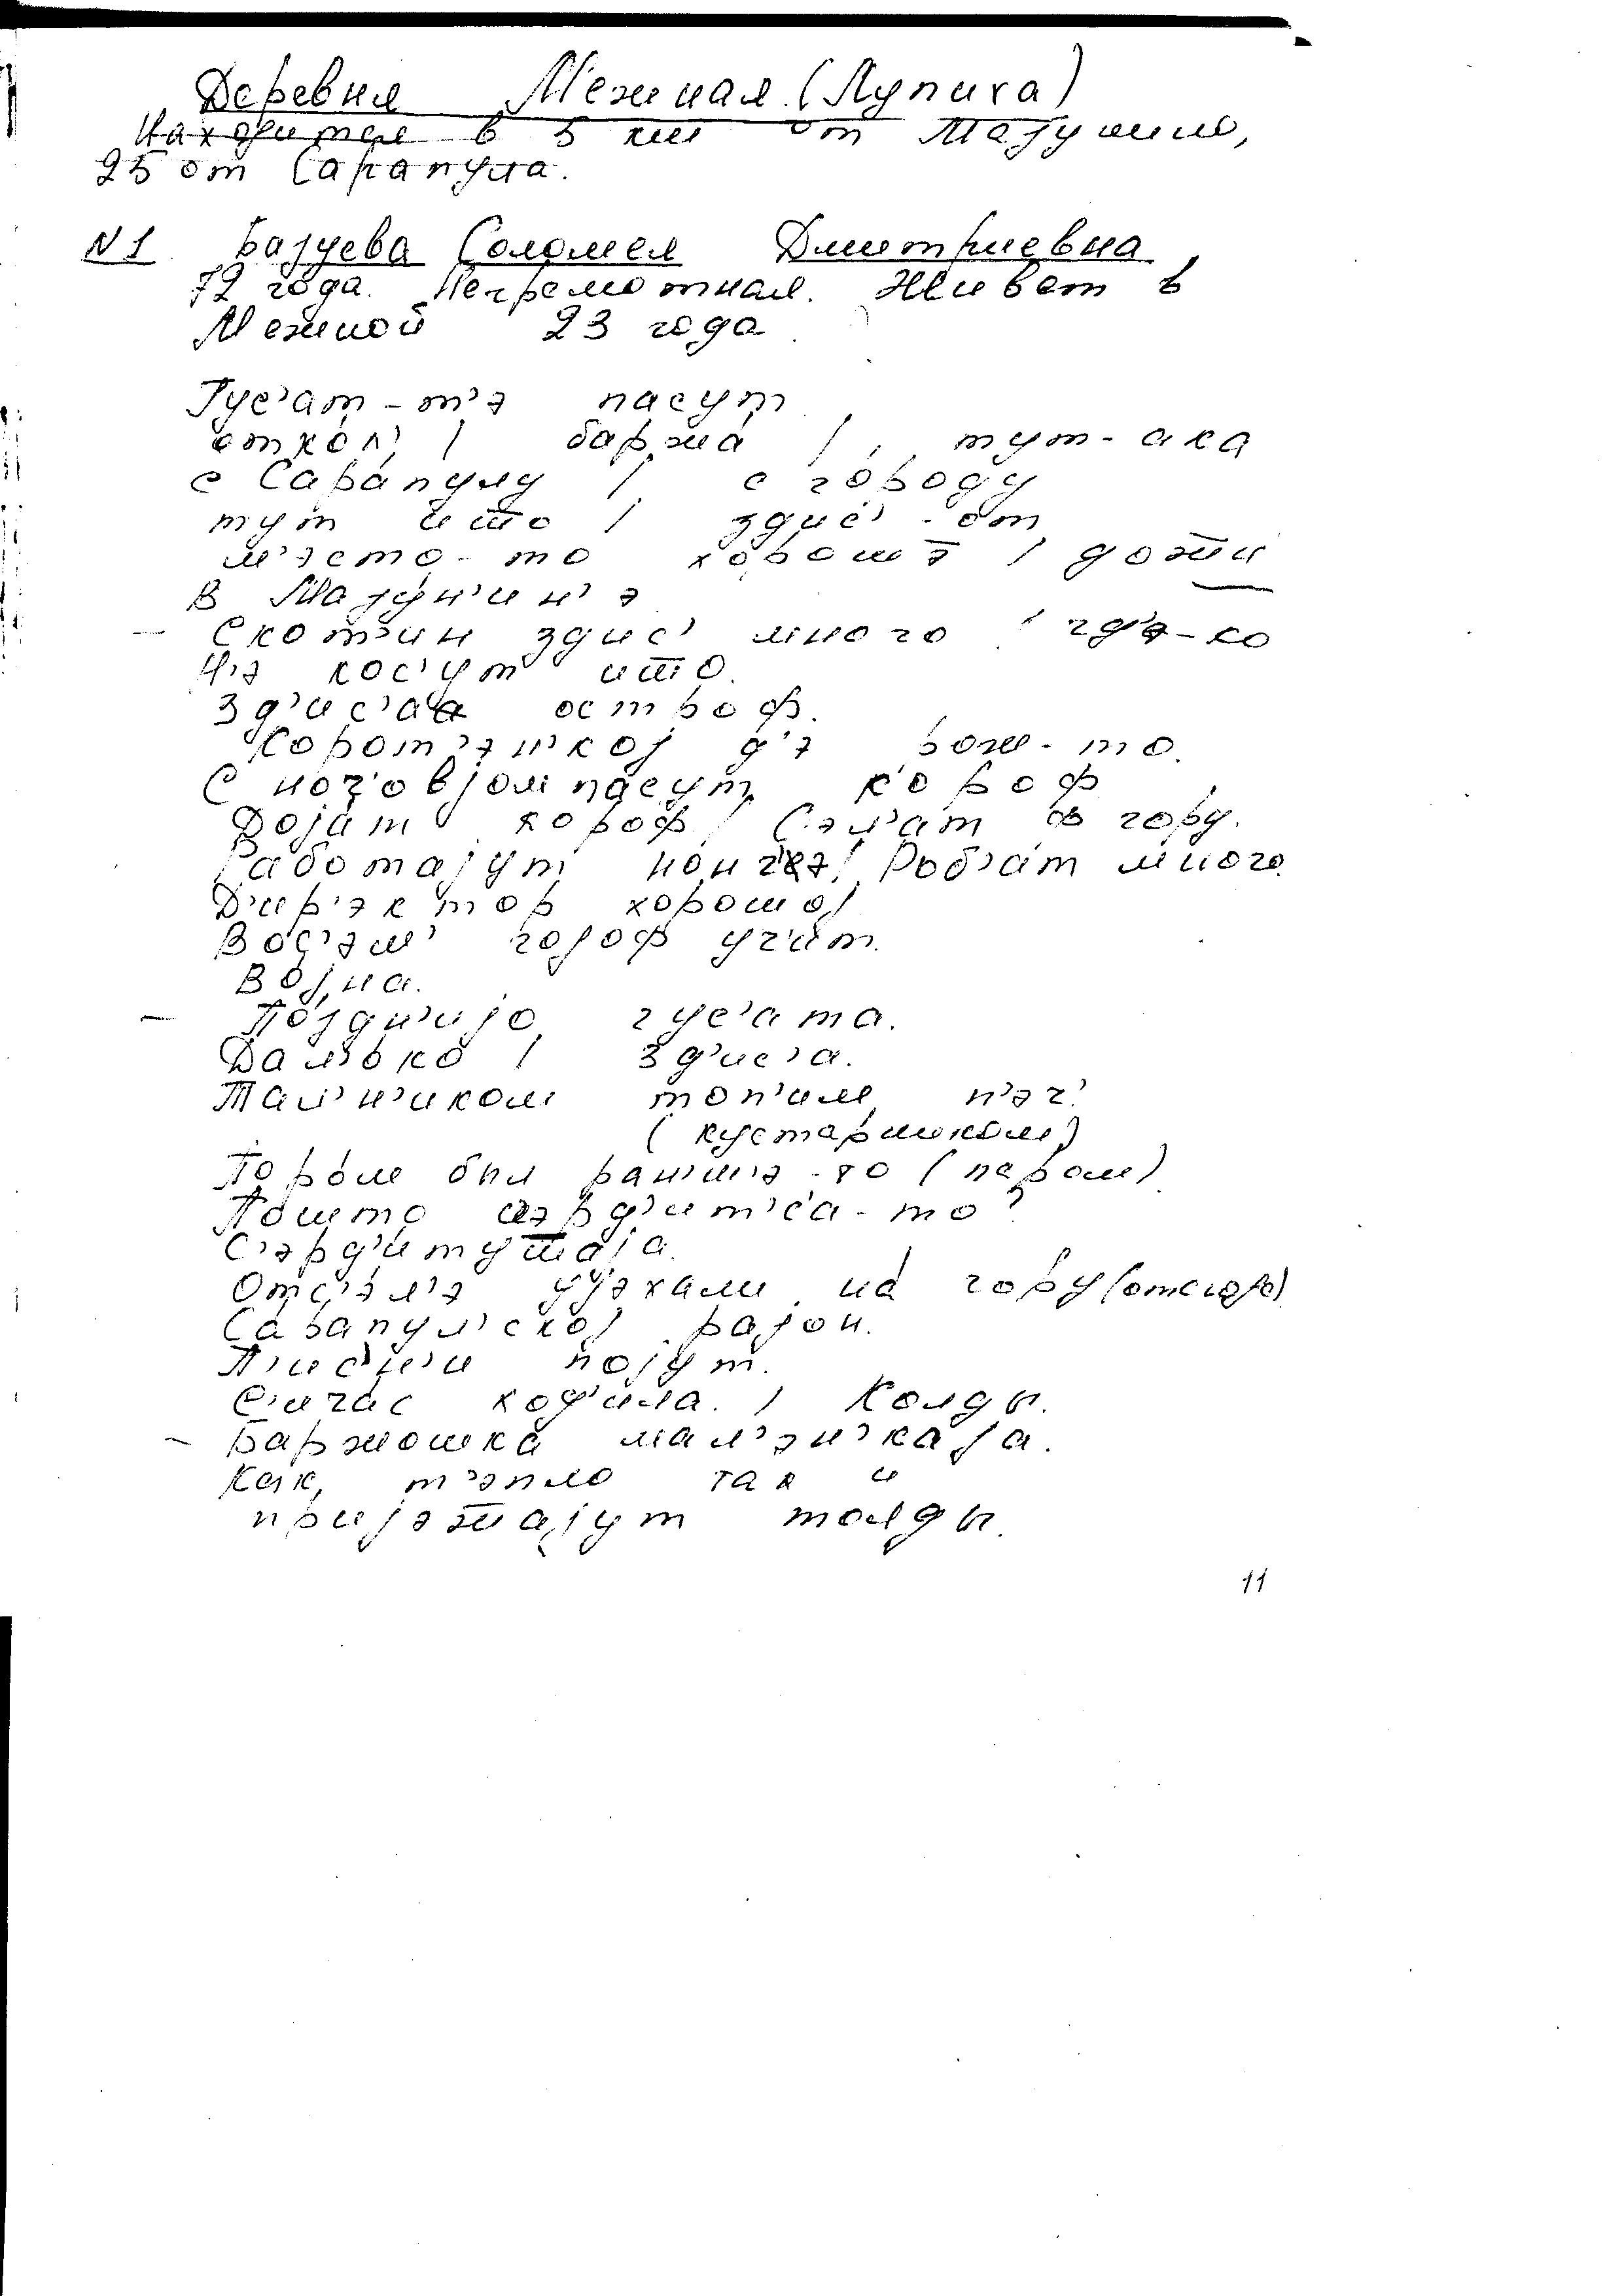 Деревня Межная (Лупиха)
Находится в 5 км от Мазунино,
25 от Сарапула.
N 1 Базуева Соломея Дмитриевна
72 года. Неграмотная. Живет в
Межной 23 года
Гус'ат-т'э пасут
откол' / баржа / тут-ака
с Сарапулу / с городу
тут ишо / здис'-от
м'эсто-то хорошэ /
В Мазун'ин'э
– Скот'ин здис' много / гд'э-ко
н'э кос'ут ишо.
Зд'ис'а остроф.
Корот'эн'кој д'э рож-то.
С ноч'овјом пасут короф
Дојат короф / С'эл'ат в гору.
Работајут Роб'ат много.
Д'ир'эктор хорошој
Вос'эм' годоф уч'ит.
Војна.
– Позд'н'ијо гус'ата.
Дал'око / Зд'ис'а.
Тал'н'иком топ'им п'эч'
(кустарником)
Пором был ран'шэ-то (паром)
Пошто с'эрд'ит'с'а-то?
С'эрд'итушаја.
Отс'эл'э ујэхали на гору (отсюда)
Сарапул'ској рајон.
П'ис'н'и појут.
С'ичас ход'ила. / Колды.
– Баржошка мал'эн'каја.
Как т'эпло так и
пријэжајут толды.
11